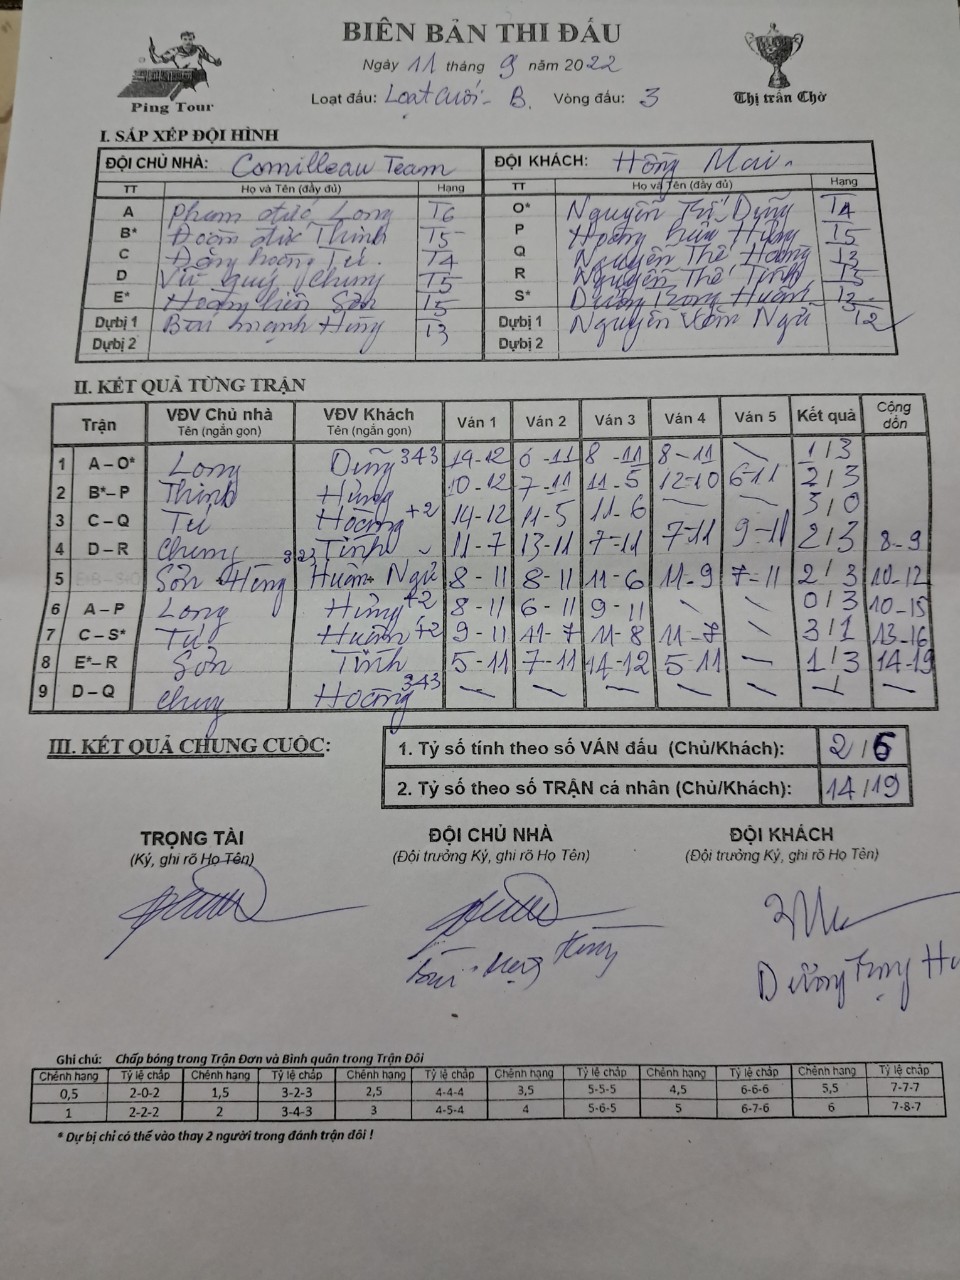 BIÊN BẢN THI ĐẤU
Ngày 11 tháng 9 năm 2022
Loạt đấu: Loạt cuối - B. Vòng đấu: 3
Ping Tour
Thị trấn Chờ
I. SẮP XẾP ĐỘI HÌNH
ĐỘI CHỦ NHÀ: Cornilleau Team ĐỘI KHÁCH: Hồng Mai.
TT Họ và Tên (đầy đủ) Hạng TT Họ và Tên (đầy đủ) Hạng
A Phạm đức Long T6 O* Nguyễn Trí Dũng T4
B* Đoàn đức Thịnh T5 P Hoàng hữu Hùng T5
C Đặng hoàng Tú. T4 Q Nguyễn Thế Hoàng T3
D Vũ quý Chung T5 R Nguyễn Thế Tính T3
E* Hoàng Sơn T5 S* Dương Trọng Huấn. T3
Dự bị 1 Bùi mạnh Hùng T3 Dự bị 1 Nguyễn Văn Ngữ T2
Dự bị 2 Dự bị 2
II. KẾT QUẢ TỪNG TRẬN
Trận VĐV Chủ nhà Tên (ngắn gọn) VĐV Khách Tên (ngắn gọn) Ván 1 Ván 2 Ván 3 Ván 4 Ván 5 Kết quả Cộng dồn
1 A – O* Long Dũng 343 14-12 6-11 8-11 8-11 \ 1/3
2 B* – P Thịnh Hùng 10-12 7-11 11-5 12-10 6-11 2/3
3 C – Q Tú Hoàng +2 14-12 11-5 11-6 – – 3/0
4 D – R Chung 323 Tính 11-7 13-11 7-11 7-11 9-11 2/3 8-9
5 Sơn + Hùng Huấn + Ngữ 8-11 8-11 11-6 11-9 7-11 2/3 10-12
6 A – P Long Hùng +2 8-11 6-11 9-11 \ \ 0/3 10-15
7 C – S* Tú Huấn +2 9-11 11-7 11-8 11-7 \ 3/1 13-16
8 E* – R Sơn Tính 5-11 7-11 14-12 5-11 – 1/3 14-19
9 D – Q Chung Hoàng 343 – – – – – – –
III. KẾT QUẢ CHUNG CUỘC:
1. Tỷ số tính theo số VÁN đấu (Chủ/Khách): 2/6
2. Tỷ số theo số TRẬN cá nhân (Chủ/Khách): 14/19
TRỌNG TÀI ĐỘI CHỦ NHÀ ĐỘI KHÁCH
(Ký, ghi rõ Họ Tên) (Đội trưởng Ký, ghi rõ Họ Tên) (Đội trưởng Ký, ghi rõ Họ Tên)
Bùi Mạnh Hùng
Dương Trọng Hu
Ghi chú: Chấp bóng trong Trận Đơn và Bình quân trong Trận Đôi
Chênh hạng Tỷ lệ chấp Chênh hạng Tỷ lệ chấp Chênh hạng Tỷ lệ chấp Chênh hạng Tỷ lệ chấp Chênh hạng Tỷ lệ chấp Chênh hạng Tỷ lệ chấp
0,5 2-0-2 1,5 3-2-3 2,5 4-4-4 3,5 5-5-5 4,5 6-6-6 5,5 7-7-7
1 2-2-2 2 3-4-3 3 4-5-4 4 5-6-5 5 6-7-6 6 7-8-7
* Dự bị chỉ có thể vào thay 2 người trong đánh trận đôi !